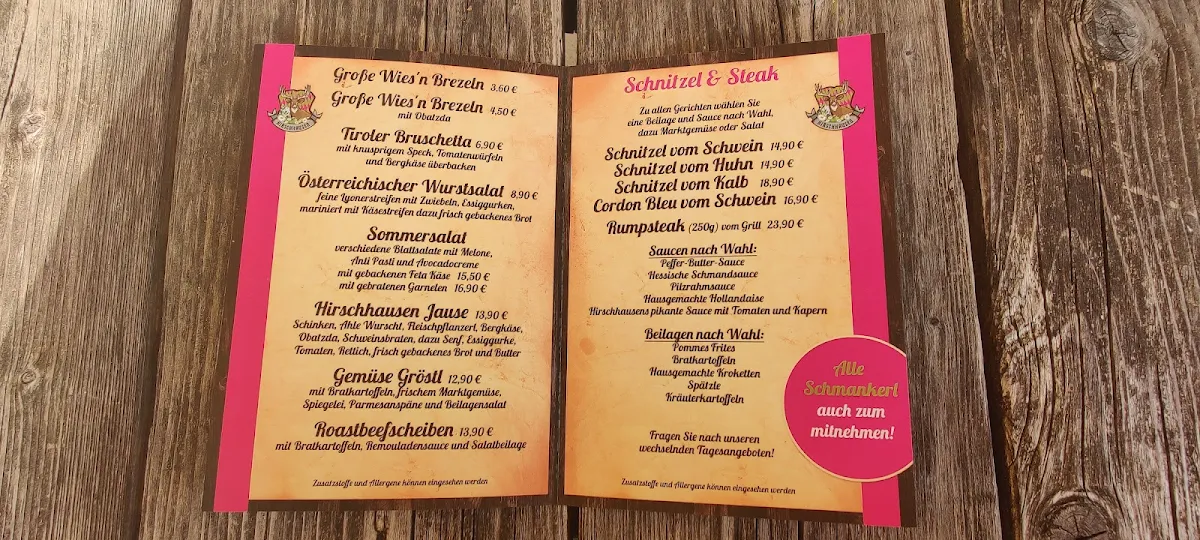 Große Wies'n Brezeln 3,60 €
Große Wies'n Brezeln 4,50 €
mit Obatzda
Tiroler Bruschetta 6,90 €
mit knusprigem Speck, Tomatenwürfeln
und Bergkäse überbacken
Österreichischer Wurstsalat 8,90 €
feine Lyonerstreifen mit Zwiebeln, Essiggurken,
mariniert mit Käsestreifen dazu frisch gebackenes Brot
Sommersalat
verschiedene Blattsalate mit Melone,
Anti Pasti und Avocadocreme
mit gebackenen Feta Käse 15,50 €
mit gebratenen Garnelen 16,90 €
Hirschhausen Jause 13,90 €
Schinken, Ahle Wurscht, Fleischpflanzerl, Bergkäse,
Obatzda, Schweinsbraten, dazu Senf, Essiggurke,
Tomaten, Rettich, frisch gebackenes Brot und Butter
Gemüse Gröstl 12,90 €
mit Bratkartoffeln, frischem Marktgemüse,
Spiegelei, Parmesanspäne und Beilagensalat
Roastbeefscheiben 13,90 €
mit Bratkartoffeln, Remouladensauce und Salatbeilage
Zusatzstoffe und Allergene können eingesehen werden
HIRSCHHAUSEN
Schnitzel & Steak
Zu allen Gerichten wählen Sie
eine Beilage und Sauce nach Wahl,
dazu Marktgemüse oder Salat
Schnitzel vom Schwein 14,90 €
Schnitzel vom Huhn 14,90 €
Schnitzel vom Kalb 18,90 €
Cordon Bleu vom Schwein 16,90 €
Rumpsteak (250g) vom Grill 23,90 €
Saucen nach Wahl:
Peffer-Butter-Sauce
Hessische Schmandsauce
Pilzrahmsauce
Hausgemachte Hollandaise
Hirschhausens pikante Sauce mit Tomaten und Kapern
Beilagen nach Wahl:
Pommes Frites
Bratkartoffeln
Hausgemachte Kroketten
Spätzle
Kräuterkartoffeln
Fragen Sie nach unseren
wechselnden Tagesangeboten!
Zusatzstoffe und Allergene können eingesehen werden
HIRSCHHAUSEN
Alle
Schmankerl
auch zum
mitnehmen!